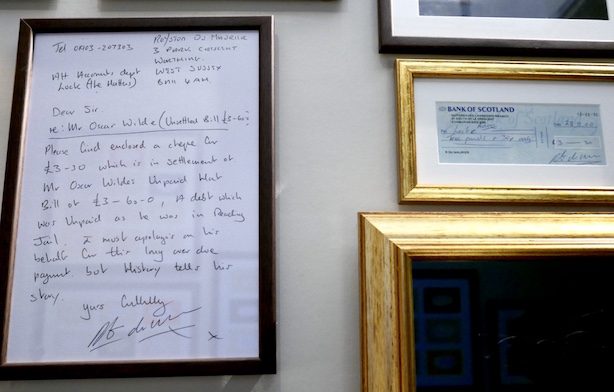 Tel 0903-207303
Royston Du Maurier
3 Park Crescent
Worthing
West Sussex
BN11 4AH
Att Accounts dept
Lock (the Hatters)
Dear Sir.
re: Mr Oscar Wilde (Unsettled Bill £3-60
Please find enclosed a cheque for
£3-30 which is in settlement of
Mr Oscar Wildes Unpaid Hat
Bill of £3-6s-0, A debt which
was Unpaid as he was in Reading
Jail. I must apologis on his
behalf for this long over due
payment. but History tells his
story.
yours faithfully
x
BANK OF SCOTLAND
£3-30